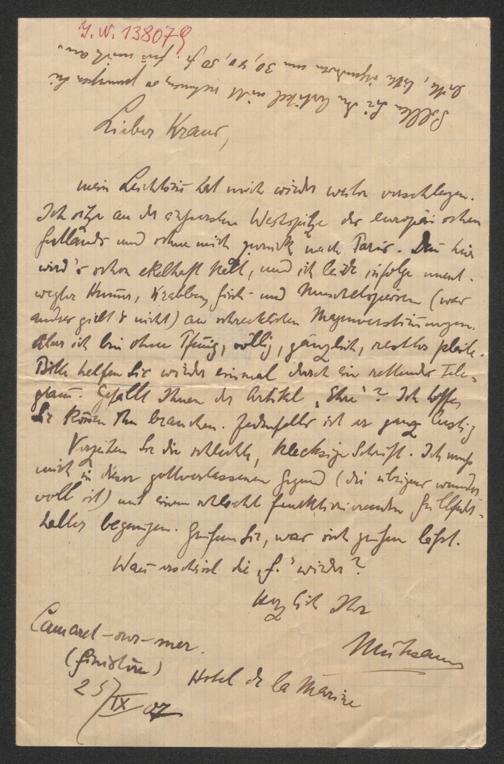 I.N. 138079
Sollten Sie den Artikel nicht nehmen so
bitte, bitte 30, 40, 50 fr. für mich an.
Lieber Kraus,
mein Leichtsinn hat mich wieder weiter verschlagen.
Ich sitze an der äussersten Westspitze des europäischen
Festlands und sehne mich zurück nach Paris. Denn hier
wird's schon ekelhaft kalt, und ich leide infolge unent-
wegter Hummer, Krabben, Fisch- und Muschelspeisen (was
anders giebt's nicht) an schrecklichen Magenverstimmungen.
Aber ich bin ohne Pfennig, völlig, gänzlich, restlos pleite.
Bitte helfen Sie wieder einmal durch ein rettendes Tele-
gramm. Gefällt Ihnen der Artikel „Ehre"? Ich hoffe,
Sie können ihn brauchen. Jedenfalls ist er ganz lustig
Verzeihen Sie die schlechte, klecksige Schrift. Ich muss
mich in dieser gottverlassenen Gegend (die übrigens wunder-
voll ist) mit einem schlecht funktionierenden Füllfeder-
halter begnügen. Grüssen Sie, was sich grüssen lässt.
Wann erscheint die „F." wieder?
Herzlich Ihr
Mühsam
Camaret-sur-mer.
(Finistère)
Hotel de la Marine
25/IX 07